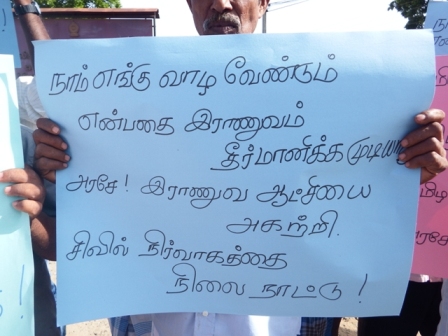 நாம் எங்கு வாழ வேண்டும்
என்பதை இராணுவம்
தீர்மானிக்க முடியா
அரசே! இராணுவ ஆட்சியை
அகற்றி.
சிவில் நிர்வாகத்தை
நிலை நாட்டு!